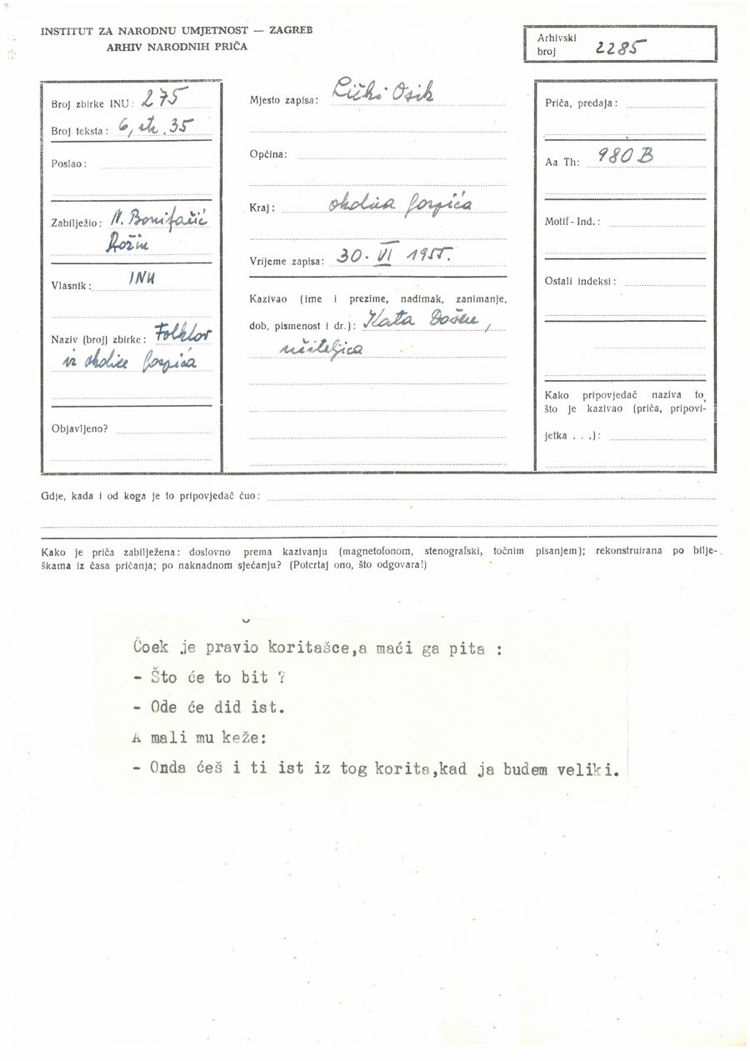 INSTITUT ZA NARODNU UMJETNOST — ZAGREB
ARHIV NARODNIH PRIČA
Arhivski broj 2285
Broj zbirke INU: 275
Broj teksta: 6, str. 35
Poslao:
Zabilježio: N. Bonifačić
Rožin
Vlasnik: INU
Naziv (broj) zbirke: Folklor
iz okolice Gospića
Objavljeno?
Mjesto zapisa: Lički Osik
Općina:
Kraj: okolica Gospića
Vrijeme zapisa: 30. VI 1955.
Kazivao (ime i prezime, nadimak, zanimanje,
dob, pismenost i dr.): Kata Došen,
učiteljica
Priča, predaja:
Aa Th: 980 B
Motif-Ind.:
Ostali indeksi:
Kako pripovjedač naziva to,
što je kazivao (priča, pripovi-
jetka . . .):
Gdje, kada i od koga je to pripovjedač čuo:
Kako je priča zabilježena: doslovno prema kazivanju (magnetofonom, stenografski, točnim pisanjem); rekonstruirana po bilje-
škama iz časa pričanja; po naknadnom sjećanju? (Potcrtaj ono, što odgovara!)
Čoek je pravio koritašce,a maći ga pita :
- Što će to bit ?
- Ode će did ist.
A mali mu keže:
- Onda ćeš i ti ist iz tog korita,kad ja budem veliki.